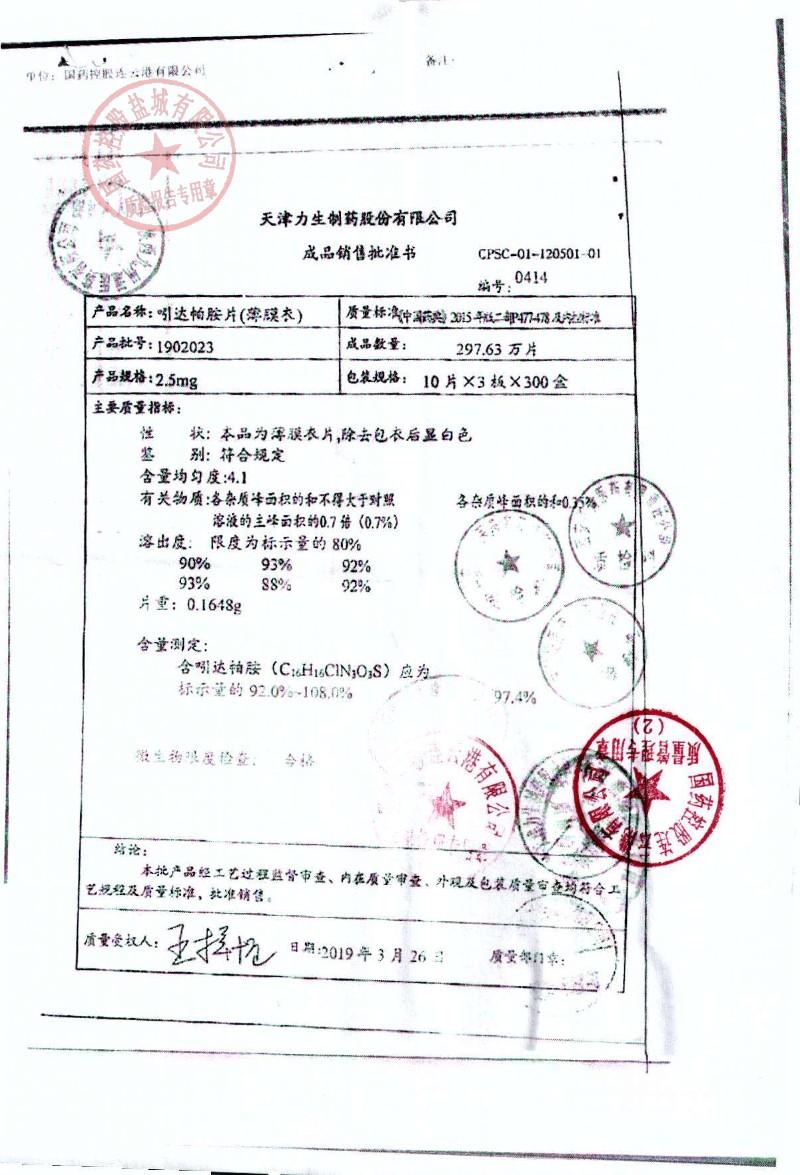 单位：国药控股连云港有限公司
备注：
国药控股盐城有限公司
质检报告专用章
天津力生制药股份有限公司
成品销售批准书
CPSC-01-120501-01
编号：0414
产品名称：吲达帕胺片(薄膜衣)
质量标准《中国药典》2015年版二部P477-478及内控标准
产品批号：1902023
成品数量： 297.63 万片
产品规格：2.5mg
包装规格： 10片×3板×300盒
主要质量指标：
性 状：本品为薄膜衣片,除去包衣后显白色
鉴 别：符合规定
含量均匀度:4.1
有关物质:各杂质峰面积的和不得大于对照 各杂质峰面积的和0.35%
溶液的主峰面积的0.7倍（0.7%）
溶出度： 限度为标示量的 80%
90% 93% 92%
93% 88% 92%
片重：0.1648g
含量测定：
含吲达帕胺（C₁₆H₁₆ClN₃O₃S）应为
标示量的 92.0%~108.0% 97.4%
微生物限度检查： 合格
连云港有限公
国药控股连云港有限公司
质量管理专用章
(2)
结论：
本批产品经工艺过程监督审查、内在质量审查、外观及包装质量审查均符合工
艺规程及质量标准，批准销售。
质量受权人：
日期:2019年3月26日
质量部门章：